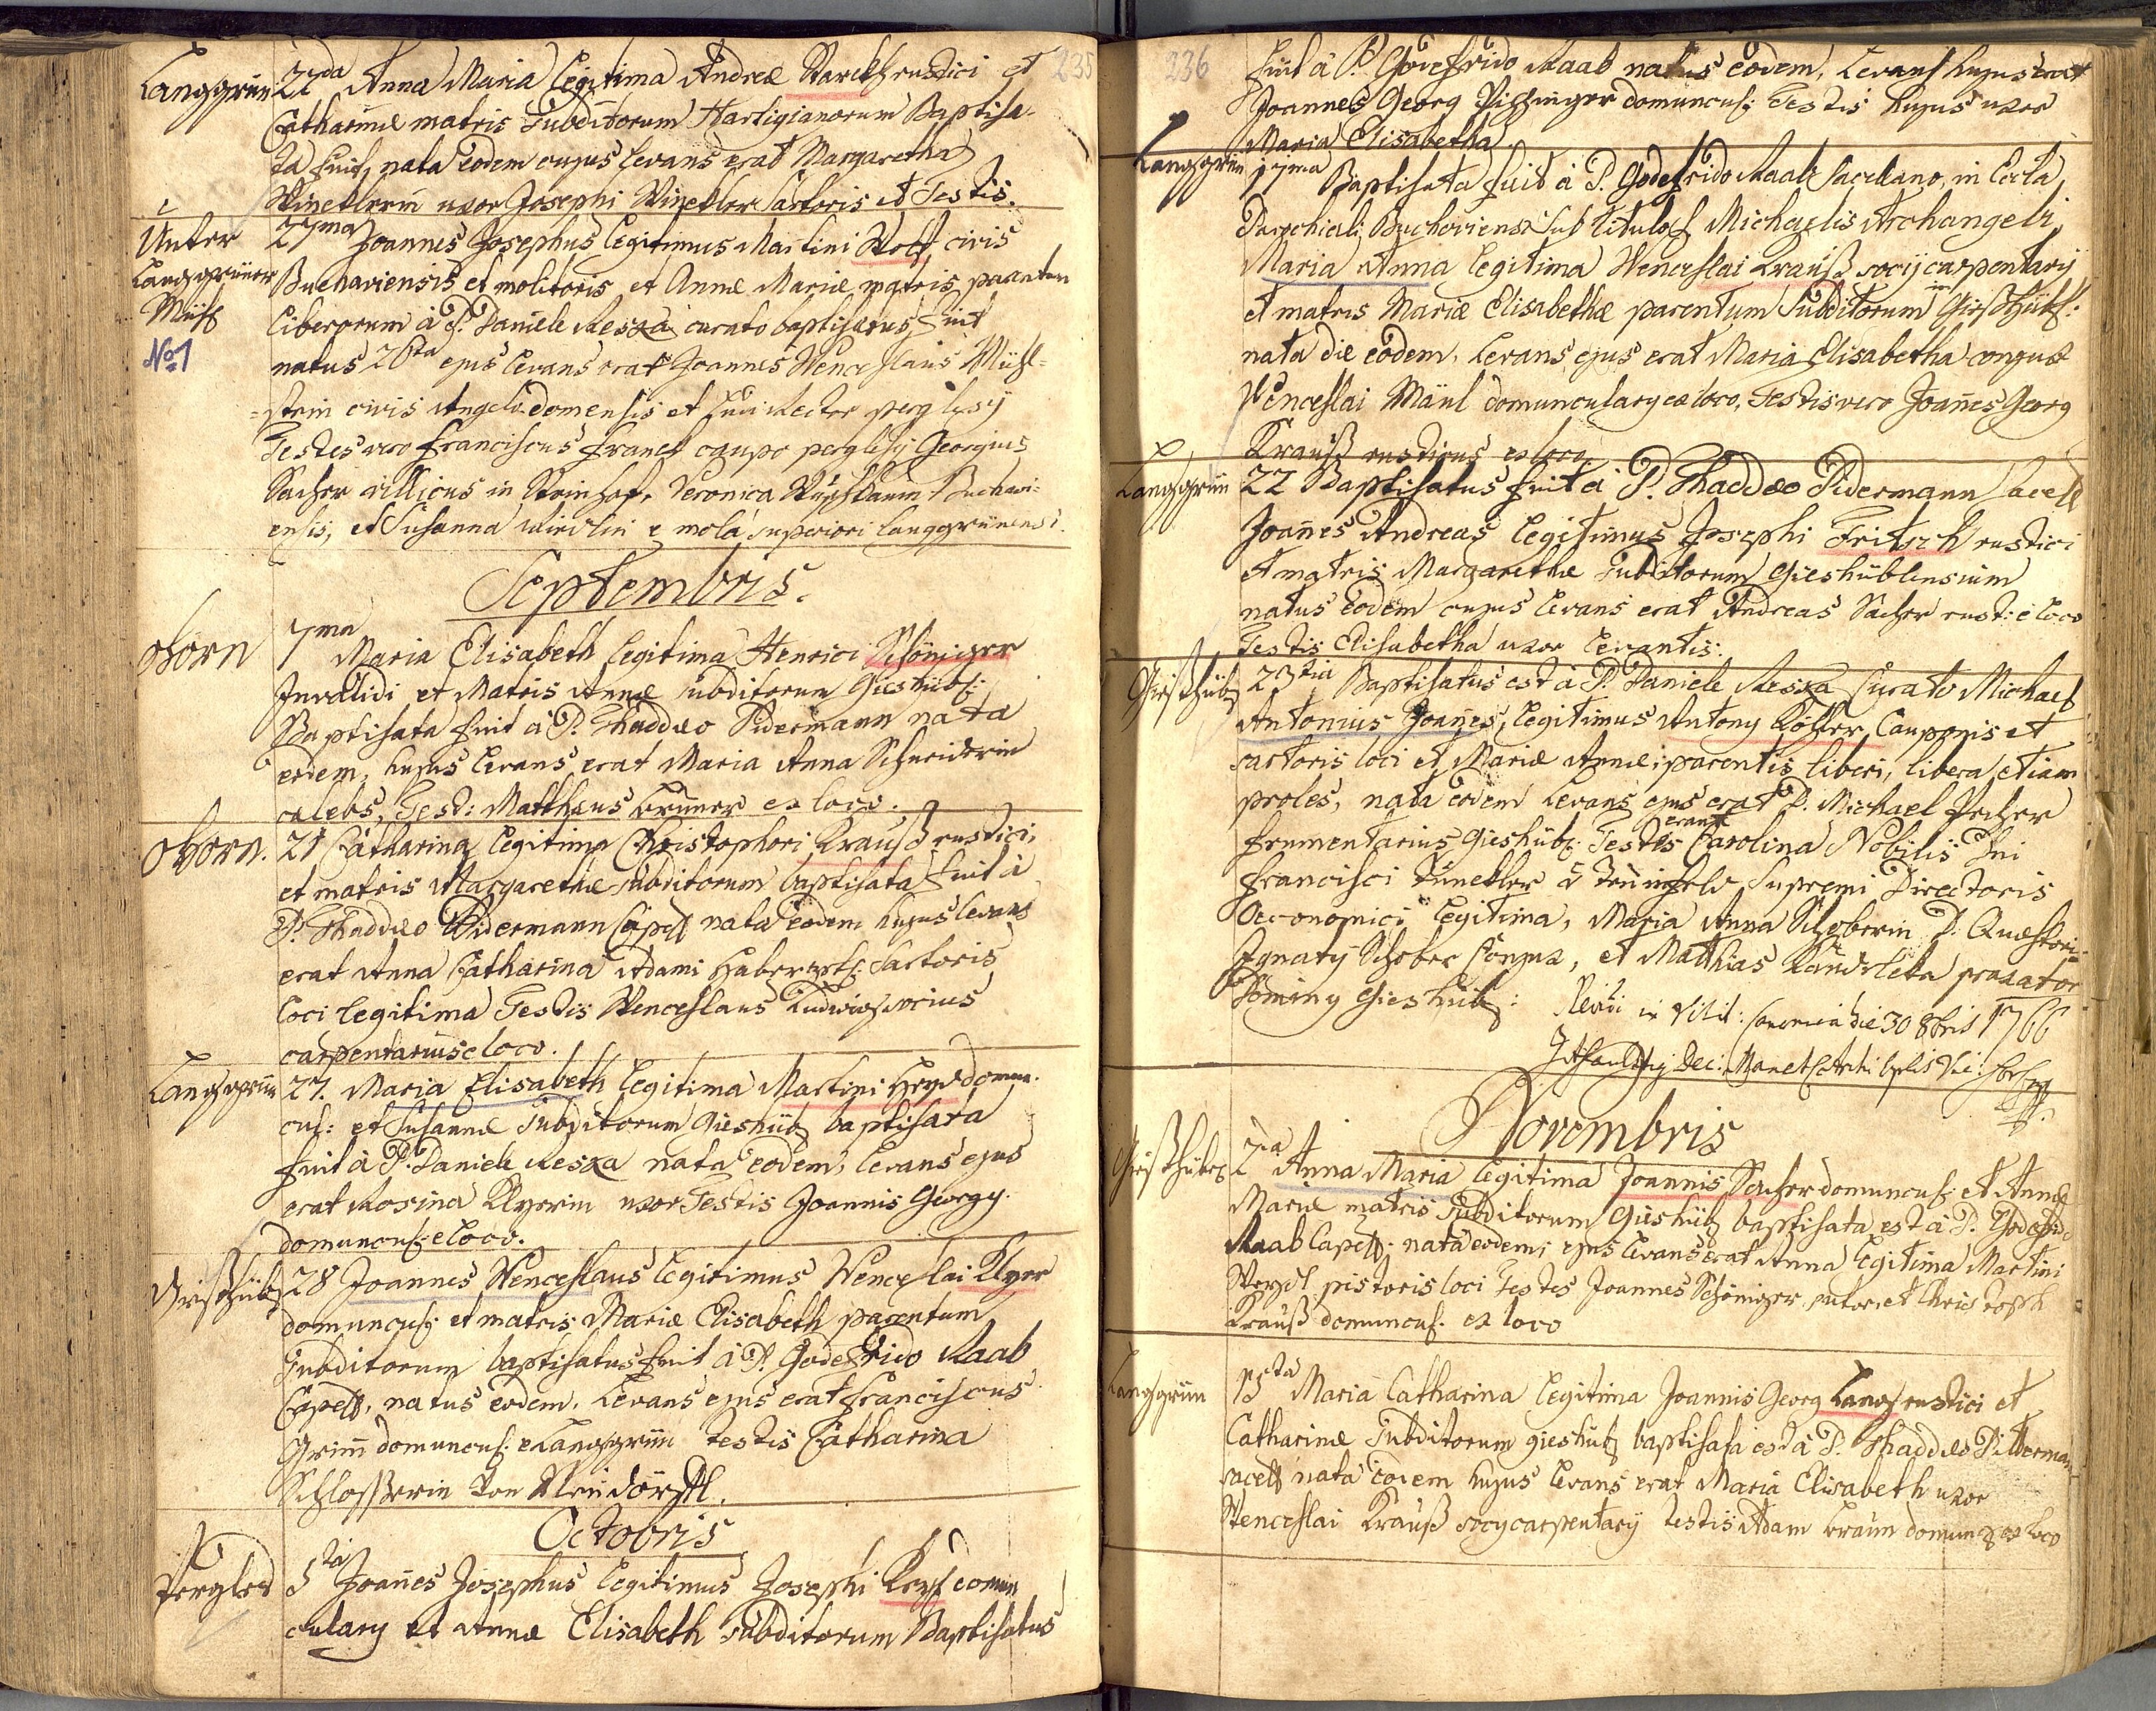 235
Langgrün 22da Anna Maria legitima Andreæ Starckh rustici et
Catharinæ matris Subditorum Hartigianorum Baptisa-
ta fuit, nata eodem cujus levans erat Margaretha
Wincklerin uxor Josephi Winckler Sartoris et Testis.
Unter 27ma Joannes Josephus legitimus Martini civis
Langgrüner Buchaviensis et molitoris et Annæ Mariæ matris parentum
Mühl liberorum à P. Daniele Reska curato baptisatus fuit
No 1 natus 26ta ejus levans erat Joannes Wenceslaus Mühl-
stein civis et Ludi Rector
Testes vero Franciscus Franck caupo Georgius
Sacher villicus in Steinhof, Veronica Buchavi-
ensis, et Susanna e mola superiori Langgrünensi.
Septembris.
ohorn 7ma Maria Elisabeth legitima Henrici Schöniger
Invalidi et Matris Annæ subditorum Gieshübl:
Baptisata fuit à P. Thaddæo Pidermann nata
eodem, hujus levans erat Maria Anna Schneiderin
cælebs, Test: Matthæus ex loco.
ohorn. 21 Catharina legitima Christophori Krauß rustici,
et matris Margarethæ subditorum baptisata fuit à
P. Thaddæo Pidermann Capell nata eodem hujus levans
erat Anna Catharina Adami Sartoris
loci legitima Testis Wenceslaus Ludwig socius
carpentarius e loco.
Langgrün 27. Maria Elisabeth legitima Martini Heyd domun-
cul: et Susannæ Subditorum Gieshübl baptisata
fuit à P. Daniele Reska nata eodem, levans ejus
erat Rosina Klyerin uxor Testis Joannis Georgy
domuncul: e loco.
Gießhübl 28 Joannes Wenceslaus legitimus Wenceslai Klyer
domuncul: et matris Mariæ Elisabeth parentum
Subditorum baptisatus fuit à P. Godefrido Raab
Capell, natus eodem. Levans ejus erat Franciscus
Grim domuncul: e Langgrün testis Catharina
Schlosserin von
Octobris
Pergles 5ta Joañes Josephus legitimus Josephi domun
culary et Annæ Elisabeth subditorum Baptisatus
236
fuit à P. Godefrido Raab natus eodem, Levans hujus erat
Joannes Georg domuncul: Testis hujus uxor
Maria Elisabetha.
Langgrün 17ma Baptisata fuit à P. Godefrido Raab Sacellano, in Eccla
Parochiali Buchoviensi sub titulo S. Michaelis Archangeli
Maria Anna legitima Wenceslai Krauß socij carpentarij
et matris Mariæ Elisabethæ parentum Subditorum in Gießhübl:
nata die eodem. Levans ejus erat Maria Elisabetha conjux
Wenceslai Mänl domunculary ex loco, Testis vero Joañes Georg
Krauß rusticus ex loco
Langgrün 22 Baptisatus fuit à P. Thaddæo Pidermann Sacell
Joañes Andreas legitimus Josephi Fritsch rustici
et matris Margarethæ subditorum Gieshüblensium
natus eodem cujus levans erat Andreas Sacher rust: e loco
Testis Elisabetha uxor levantis.
Gießhübl 23tia Baptisatus est à P. Daniele Reska Curato Michael
Antonius Joañes, legitimus Antony Köhler Cauponis et
sartoris loci et Mariæ Annæ; parentis liberi, libera etiam
proles, nata eodem Levans ejus erat D. Michael
frumentarius Gieshübl: Testes erant Carolina Nobilis Dni
Francisci Supremi Directoris
Oeconomici legitima, Maria Anna Schoberin D. Quæstori-
Ignaty Schober conjux, et Matthias
Gieshübl: Revisi in Visit: Canonica die 30 8bris 1766
Novembris
Gießhübl 2da Anna Maria legitima Joannis Sacher domuncul: et Annæ
Mariæ matris Subditorum Gieshübl baptisata est à P. Godefrido
Raab Capell: nata eodem; ejus levans erat Anna legitima Martini
pistoris loci Testes Joannes Schöniger sutor et Christoph
Krauß domuncul: ex loco
Langgrün 15ta Maria Catharina legitima Joannis Georg Lang rustici et
Catharinæ Subditorum gieshübl baptisata est à P. Thaddæo Pitterman
sacell nata eodem hujus levans erat Maria Elisabeth uxor
Wenceslai Krauß socy carpentary testis Adam domunc: ex loco